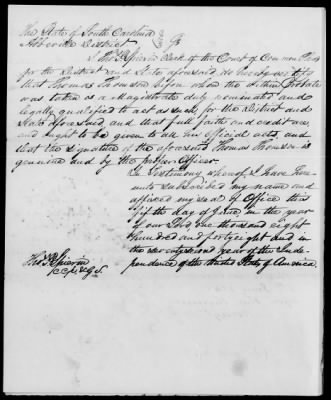 The State of South Carolina
Abbeville District
I Thos. P. Spierin Clerk of the Court of Common Pleas
for the District and State aforesaid, do hereby certify
that Thomas Thomson before whom the within Probate
was taken is a Magistrate duly nominated and
legally qualified to act as such for the District and
State aforesaid and that full faith and credit are
and ought to be given to all his official acts, and
that the signature of the aforesaid Thomas Thomson is
genuine and by the proper Officer.
In testimony whereof I have here
unto subscribed my name and
affixed my seal of Office this
fifth day of June in the year
of our Lord one thousand eight
hundred and forty eight and in
the seventy second year of the Inde
pendence of the United States of America.
Thos. P. Spierin